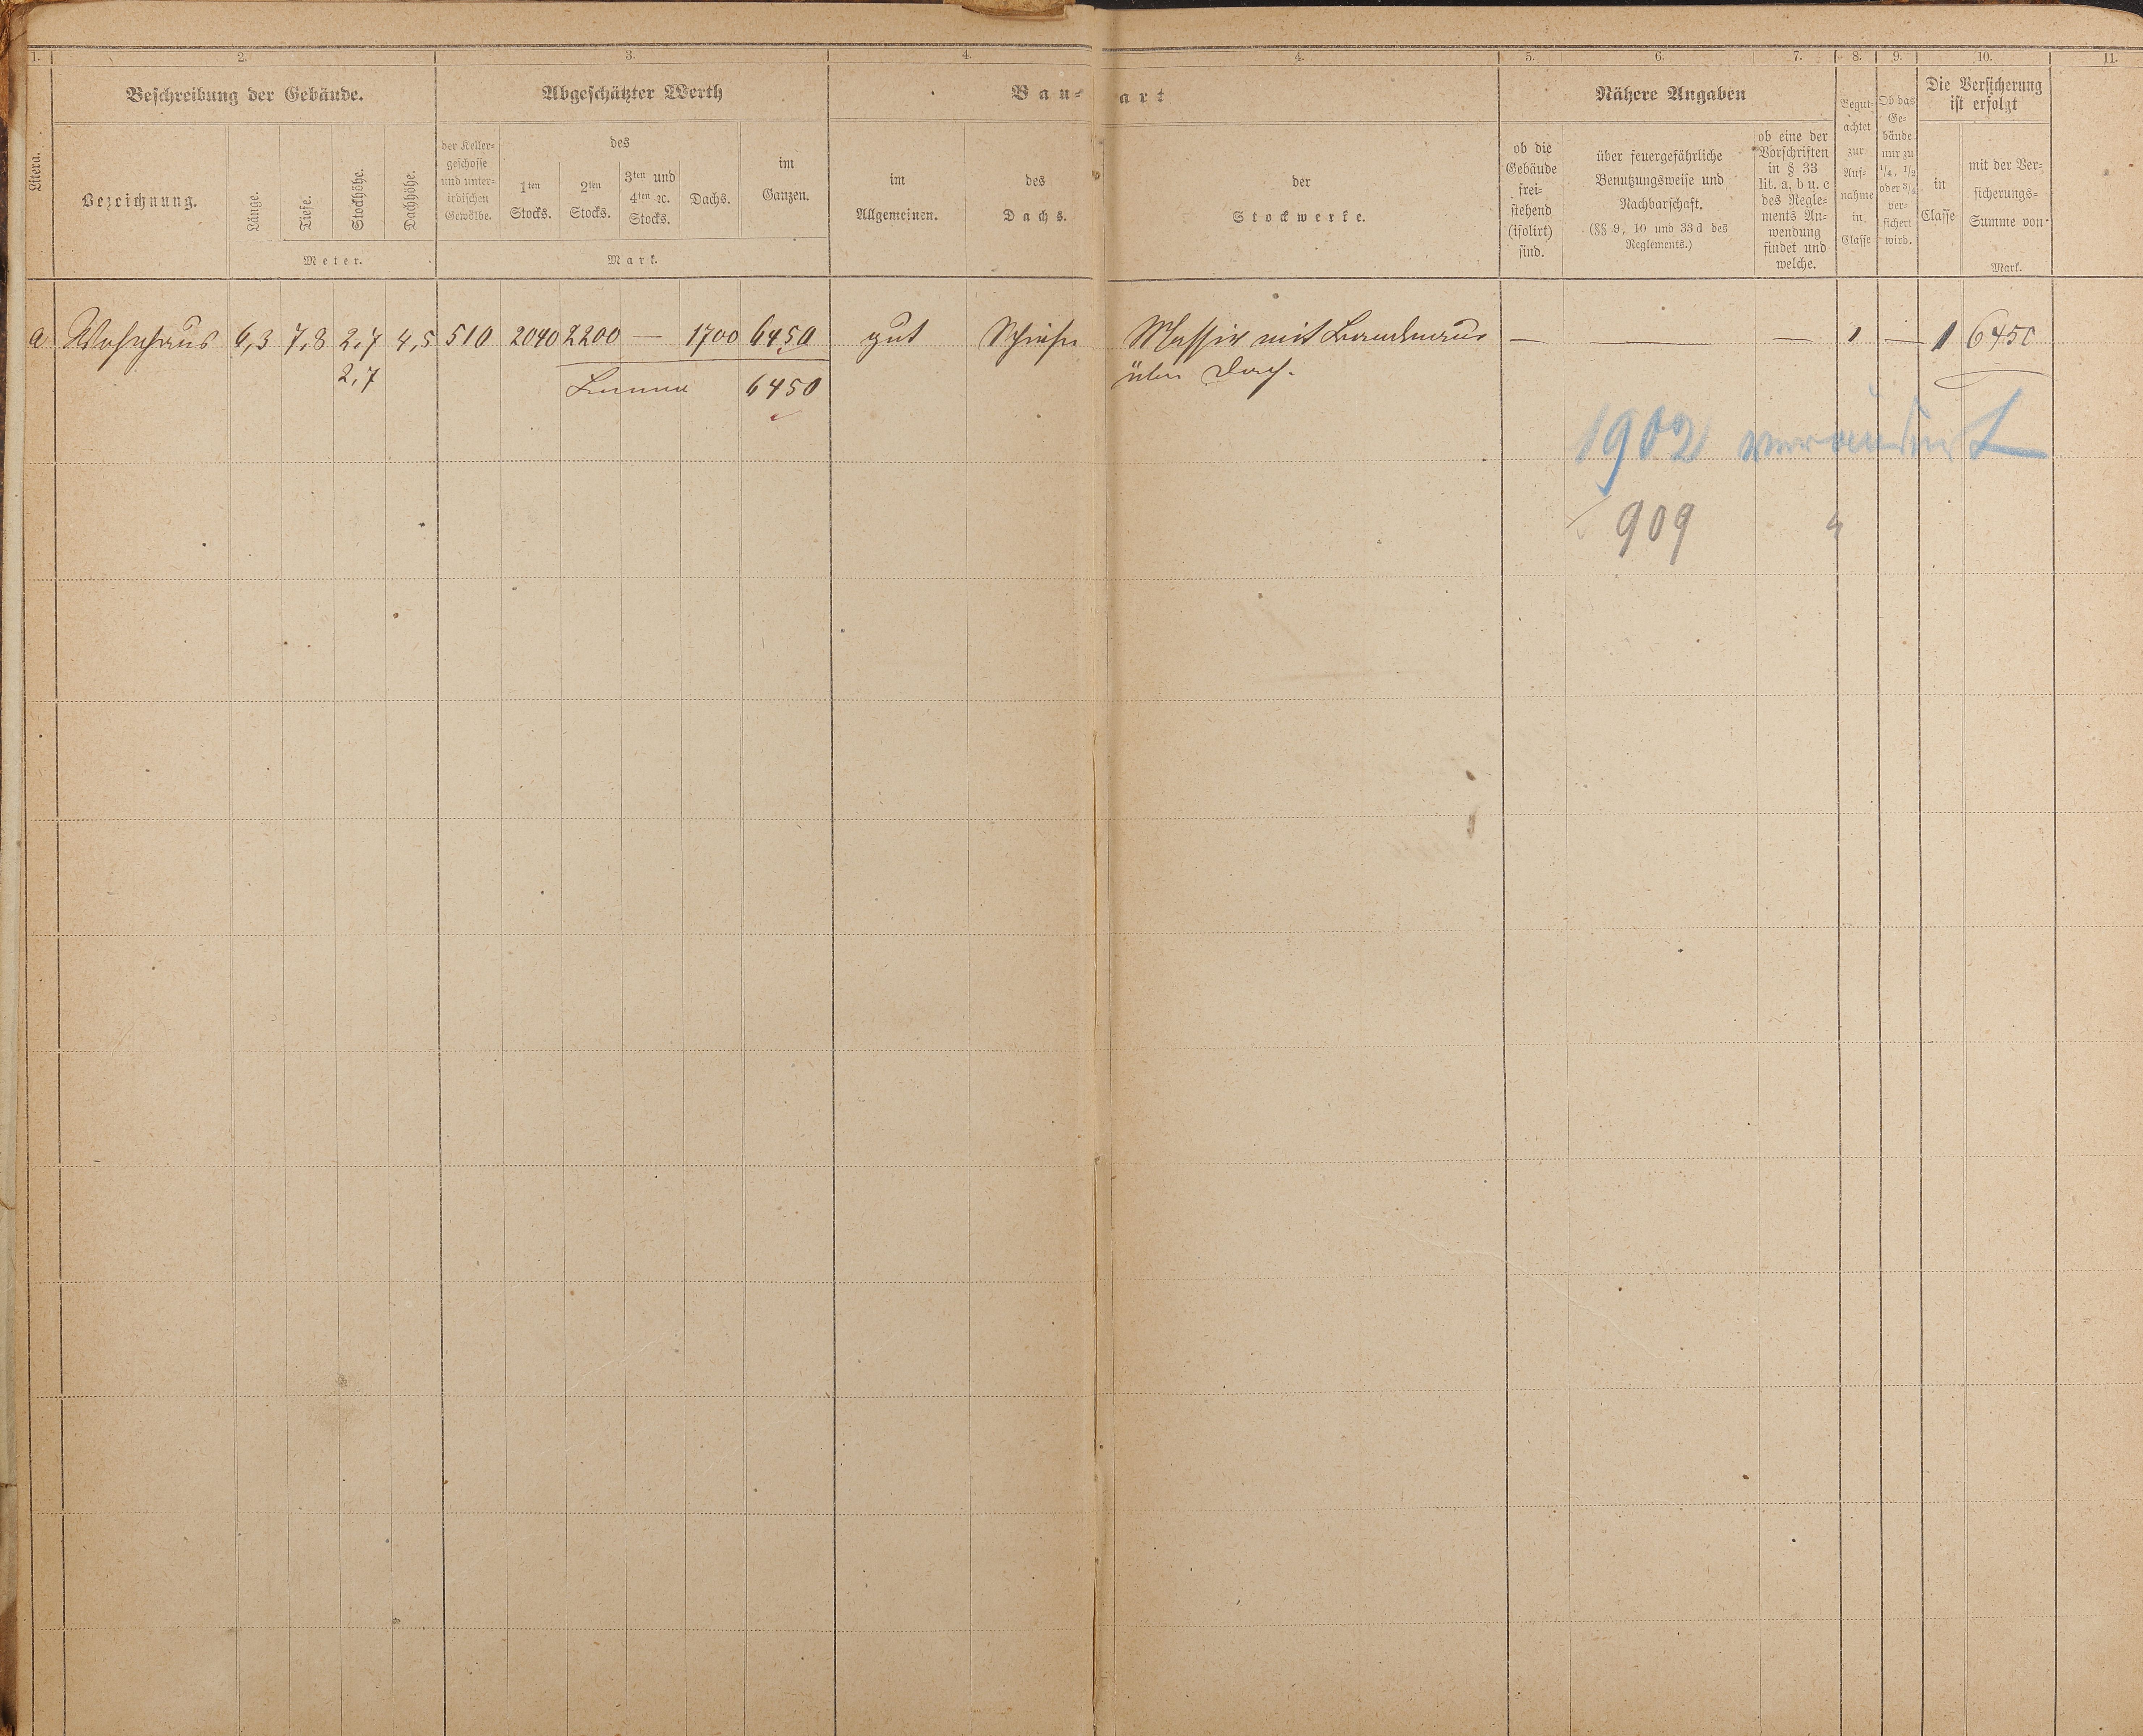 1. 2. 3. 4. 4. 5. 6. 7. 8. 9. 10. 11.
Litera.
Beschreibung der Gebäude.
Bezeichnung.
Länge.
Tiefe.
Stockhöhe.
Dachhöhe.
Meter.
Abgeschätzter Werth
der Keller-
geschosse
und unter-
irdischen
Gewölbe.
des
1ten
Stocks.
2ten
Stocks.
3ten und
4ten ꝛc.
Stocks.
Dachs.
im
Ganzen.
Mark.
Bau-
art
im
Allgemeinen.
des
Dachs.
der
Stockwerke.
Nähere Angaben
ob die
Gebäude
frei-
stehend
(isolirt)
sind.
über feuergefährliche
Benutzungsweise und
Nachbarschaft.
(§§ 9, 10 und 33d des
Reglements.)
ob eine der
Vorschriften
in § 33
lit. a, b u. c
des Regle-
ments An-
wendung
findet und
welche.
Begut-
achtet
zur
Auf-
nahme
in
Classe
Ob das
Ge-
bäude
nur zu
1/4, 1/2
oder 3/4
ver-
sichert
wird.
Die Versicherung
ist erfolgt
in
Classe
mit der Ver-
sicherungs-
Summe von
Mark.
a Wohnhaus 6,3 7,8 2,7 4,5 510 2040 2200 — 1700 6450 gut Schiefer Massiv mit Brandmaur — — — 1 — 1 6450
2,7 Summa 6450 über Dach.
1902 verändert
909 "